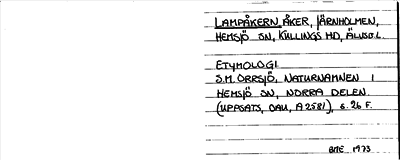 LAMPÅKERN, ÅKER, JÄRNHOLMEN,
HEMSJÖ SN, KULLINGS HD, ÄLVSB.L.
ETYMOLOGI
S.M. ORRSJÖ, NATURNAMNEN I
HEMSJÖ SN, NORRA DELEN.
(UPPSATS, OAU, A 2581), S. 26 F.
BME 1973